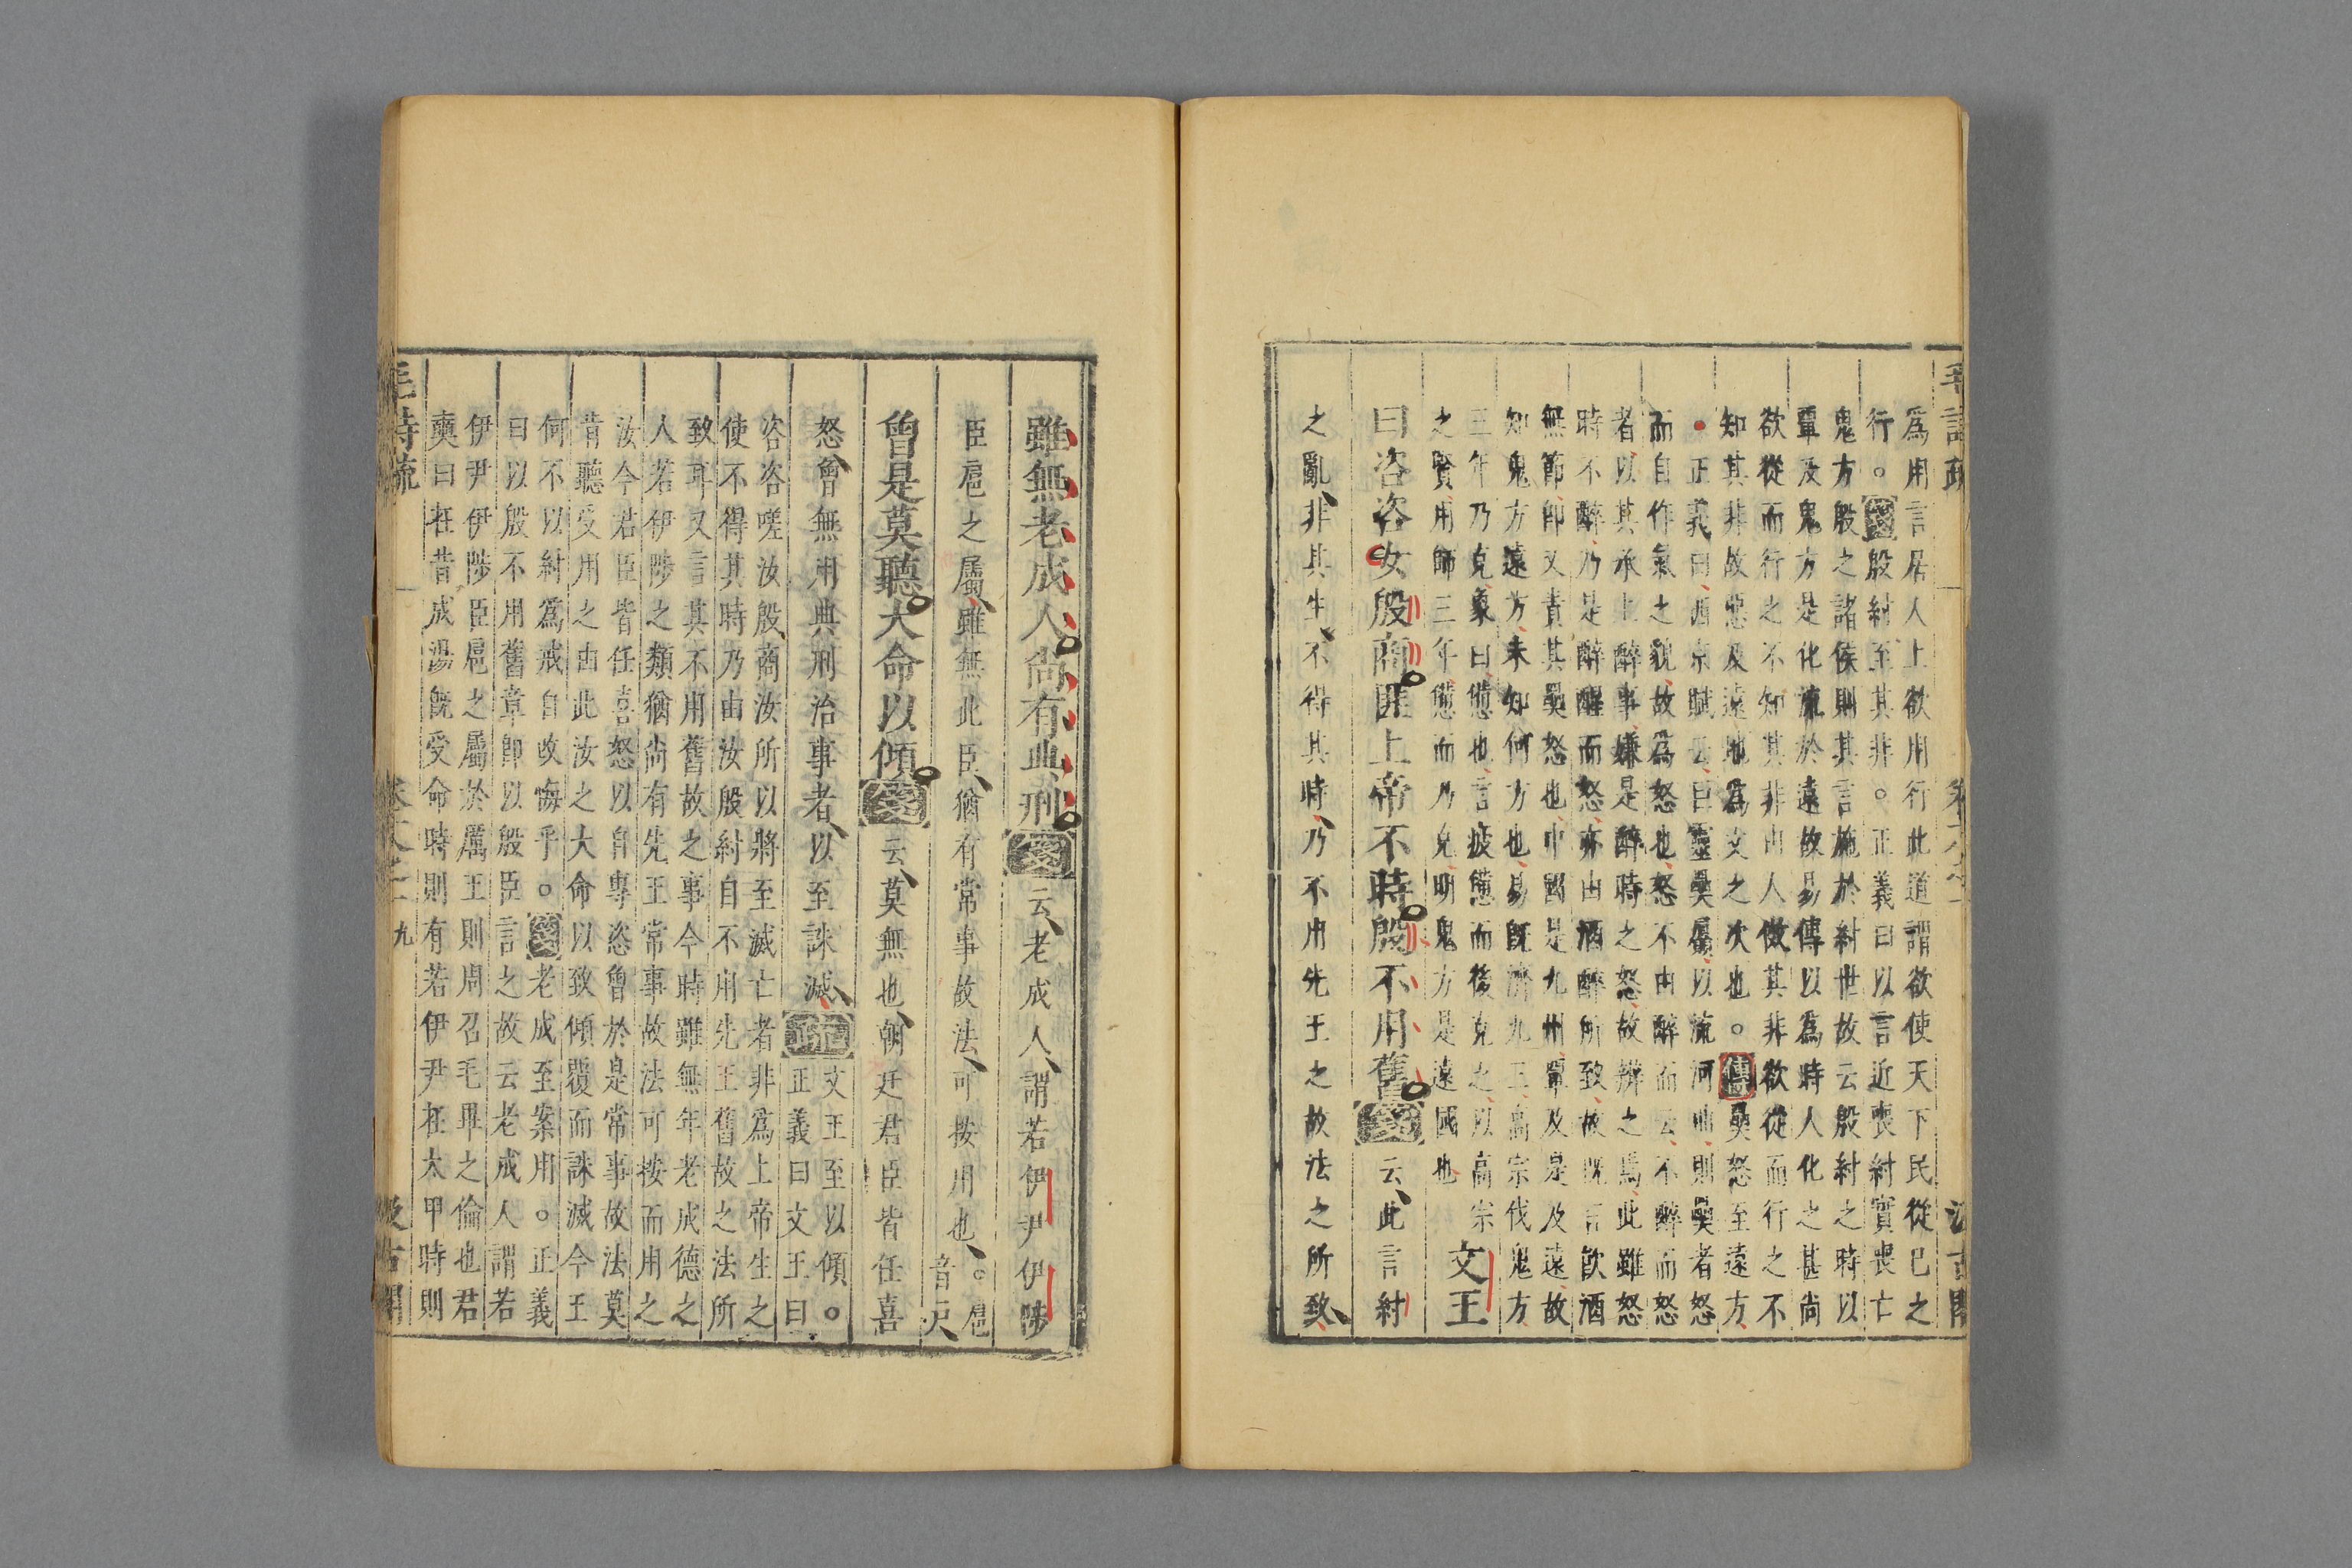 爲用言居人上欲用行此道謂欲使天下民從已之
行。箋殷紂至其非。正義曰以言近喪紂實喪亡
鬼方殷之諸侯則其言施於紂世故云殷紂之時以
覃及鬼方是化流於遠故易傳以爲時人化之甚尚
欲從而行之不知其非由人傚其非欲從而行之不
知其非故惡及遠地爲文之次也。傳奰怒至遠方
正義曰西京賦云巨靈奰屭以流河曲則奰者怒
而自作氣之貌故爲怒也怒不由醉而云不醉而怒
者以其承上醉事嫌是醉時之怒故辨之焉此雖怒
時不醉乃是醉醒而怒亦由酒醉所致故既言飲酒
無節卽又責其奰怒也中國是九州覃及是及遠故
知鬼方遠方未知何方也易既濟九三高宗伐鬼方
三年乃克象曰憊也言疲憊而後克之以高宗
之賢用師三年憊而乃克明鬼方是遠國也
文王
曰咨咨女殷商匪上帝不時殷不用舊箋云此言紂
之亂非其生不得其時乃不用先王之故法之所致
雖無老成人尚有典刑箋云老成人謂若伊尹伊陟
臣扈之屬雖無此臣猶有常事故法可按用也。扈
音戸
曾是莫聽大命以傾箋云莫無也朝廷君臣皆任喜
怒曾無用典刑治事者以至誅滅疏文王至以傾。
正義曰文王曰
咨咨嗟汝殷商汝所以將至滅亡者非爲上帝生之
使不得其時乃由汝殷紂自不用先王舊故之法所
致耳又言其不用舊故之事今時雖無年老成德之
人若伊陟之類猶尚有先王常事故法可按而用之
汝今君臣皆任喜怒以自專恣曾於是常事故法莫
肯聽受用之由此汝之大命以致傾覆而誅滅今王
何不以紂爲戒自改悔乎。箋老成至案用。正義
曰以殷不用舊章卽以殷臣言之故云老成人謂若
伊尹伊陟臣扈之屬於厲王則周召毛畢之倫也君
奭曰在昔成湯既受命時則有若伊尹在太甲時則
毛詩疏 九 汲古閣